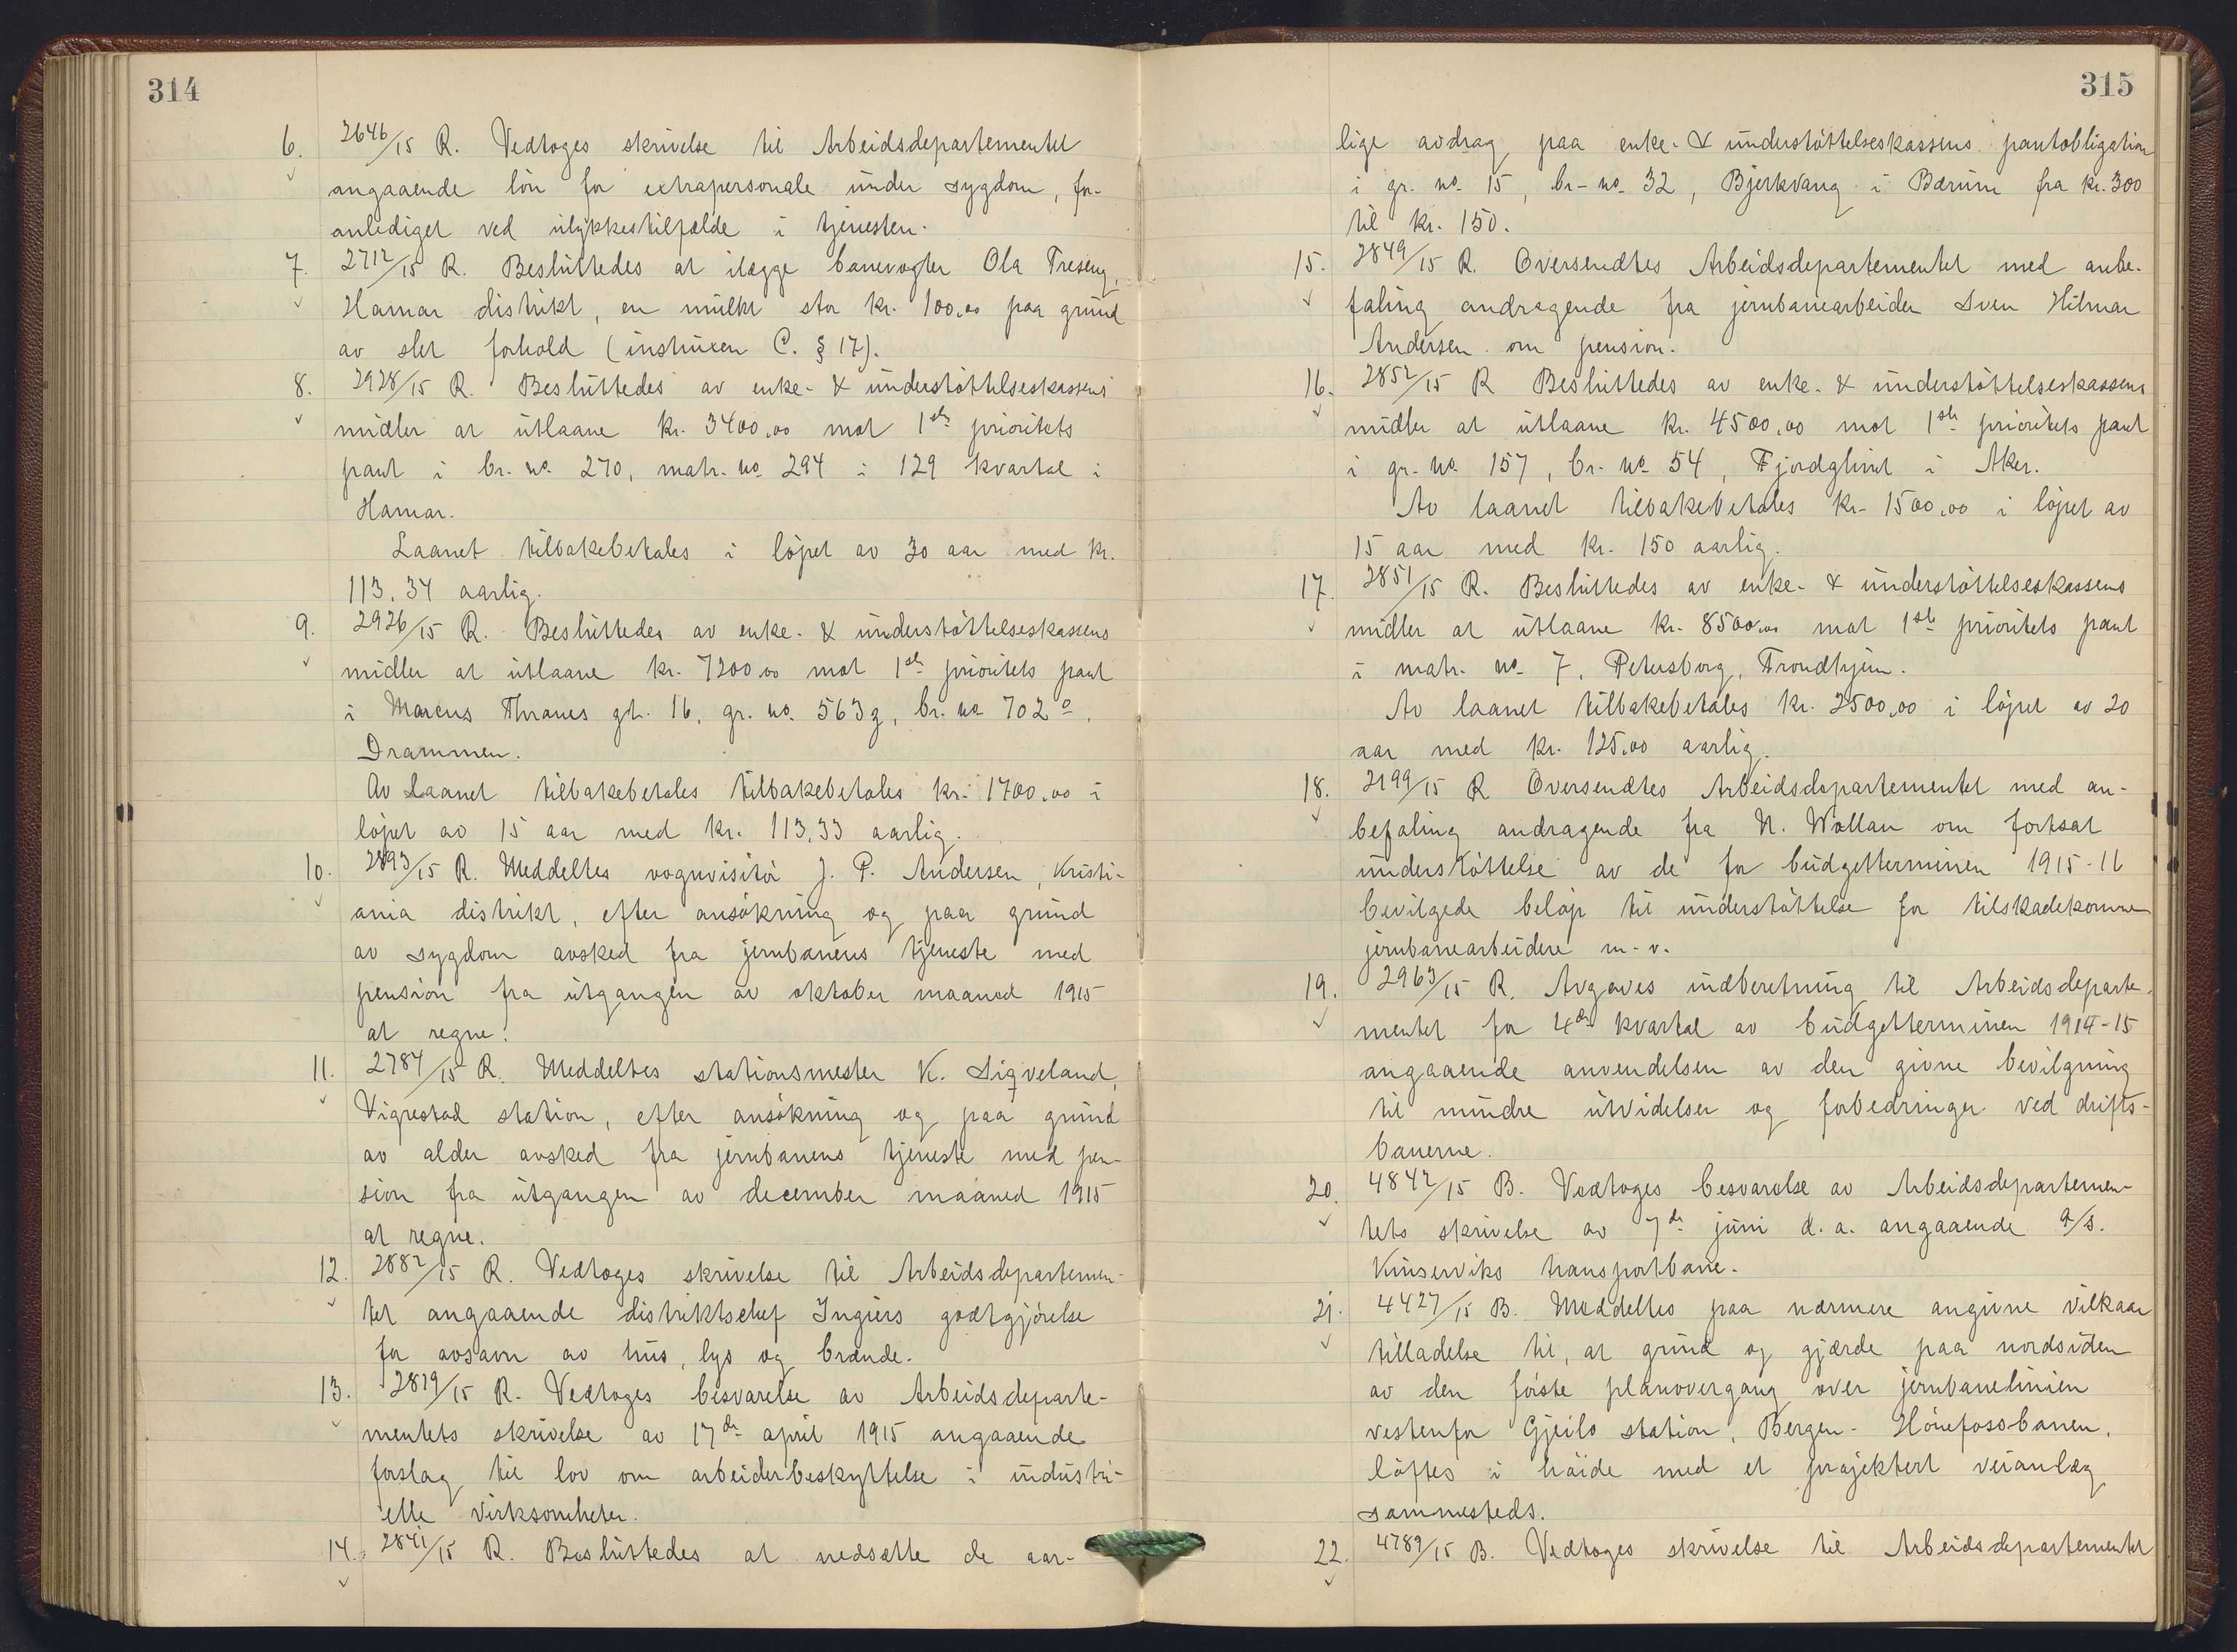 314
6. 2646/15 R. Vedtoges skrivelse til Arbeidsdepartementet
angaaende lön for extrapersonale under sygdom, for-
anlediget ved ulykkestilfælde i tjenesten.
7. 2712/15 R. Besluttedes at ilægge banevogter Ola Treseng,
Hamar distrikt, en mulkt stor kr. 100,00 paa grund
av slet forhold (instruxen C. § 17).
8. 2928/15 R. Besluttedes av enke- & understöttelseskassens
midler at utlaane kr. 3400,00 mot 1ste prioritets
pant i br. no. 270, matr. no. 294 i 129 kvartal i
Hamar.
Laanet tilbakebetales i löpet av 30 aar med kr.
113,34 aarlig.
9. 2926/15 R. Besluttedes av enke- & understöttelseskassens
midler at utlaane kr. 7200,00 mot 1ste prioritets pant
i Marcus Thranes gt. 16, gr. no. 563g, br. no 702o,
Drammen.
Av Laanet tilbakebetales tilbakebetales kr. 1700,00 i
löpet av 15 aar med kr. 113,33 aarlig.
10. 2893/15 R. Meddeltes vognvisitör J. P. Andersen, Kristi-
ania distrikt, efter ansökning og paa grund
av sygdom avsked fra jernbanens tjeneste med
pension fra utgangen av oktober maaned 1915
at regne.
11. 2784/15 R. Meddeltes stationsmester K. Sigveland,
Vigrestad station, efter ansökning og paa grund
av alder avsked fra jernbanens tjeneste med pen-
sion fra utgangen av december maaned 1915
at regne.
12. 2882/15 R. Vedtoges skrivelse til Arbeidsdepartemen-
tet angaaende distriktschef Ingiers godtgjörelse
for avsavn av hus, lys og brænde.
13. 2819/15 R. Vedtoges besvarelse av Arbeidsdeparte-
mentets skrivelse av 17de april 1915 angaaende
forslag til lov om arbeiderbeskyttelse i industri-
elle virksomheter.
14. 2841/15 R. Besluttedes at nedsætte de aar-
315
lige avdrag paa enke- & understöttelseskassens pantobligation
i gr. no. 15, br. no. 32, Bjerkvang i Bærum fra kr. 300
til kr. 150.
15. 2849/15 R. Oversendtes Arbeidsdepartementet med anbe-
faling andragende fra jernbanearbeider Sven Hilmar
Andersen om pension.
16. 2852/15 R Besluttedes av enke- & understöttelseskassens
midler at utlaane kr. 4500,00 mot 1ste prioritets pant
i gr. no. 157, br. no. 54, Fjordglimt i Aker.
Av laanet tilbakebetales kr. 1500,00 i löpet av
15 aar med kr. 150 aarlig.
17. 2851/15 R. Besluttedes av enke- & understöttelseskassens
midler at utlaane kr. 8500,00 mot 1ste prioritets pant
i matr. no. 7, Petersborg, Trondhjem.
Av laanet tilbakebetales kr. 2500,00 i löpet av 20
aar med kr. 125,00 aarlig.
18. 2199/15 R Oversendtes Arbeidsdepartementet med an-
befaling andragende fra N. Wollan om fortsat
understöttelse av de for budgetterminen 1915-16
bevilgede belöp til understöttelse for tilskadekomne
jernbanearbeidere m. v.
19. 2963/15 R. Avgaves indberetning til Arbeidsdeparte-
mentet for 4de kvartal av budgetterminen 1914-15
angaaende anvendelsen av den givne bevilgning
til mindre utvidelser og forbedringer ved drifts-
banerne.
20. 4842/15 B. Vedtoges besvarelse av Arbeidsdepartemen-
tets skrivelse av 7de juni d. a. angaaende A/S.
Kinserviks transportbane.
21. 4427/15 B. Meddeltes paa nærmere angivne vilkaar
tilladelse til, at grind og gjærde paa nordsiden
av den förste planovergang over jernbanelinien
vestenfor Gjeilo station, Bergen- Hönefossbanen,
löftes i höide med et projektert veianlæg
sammesteds.
22. 4789/15 B. Vedtoges skrivelse til Arbeidsdepartementet